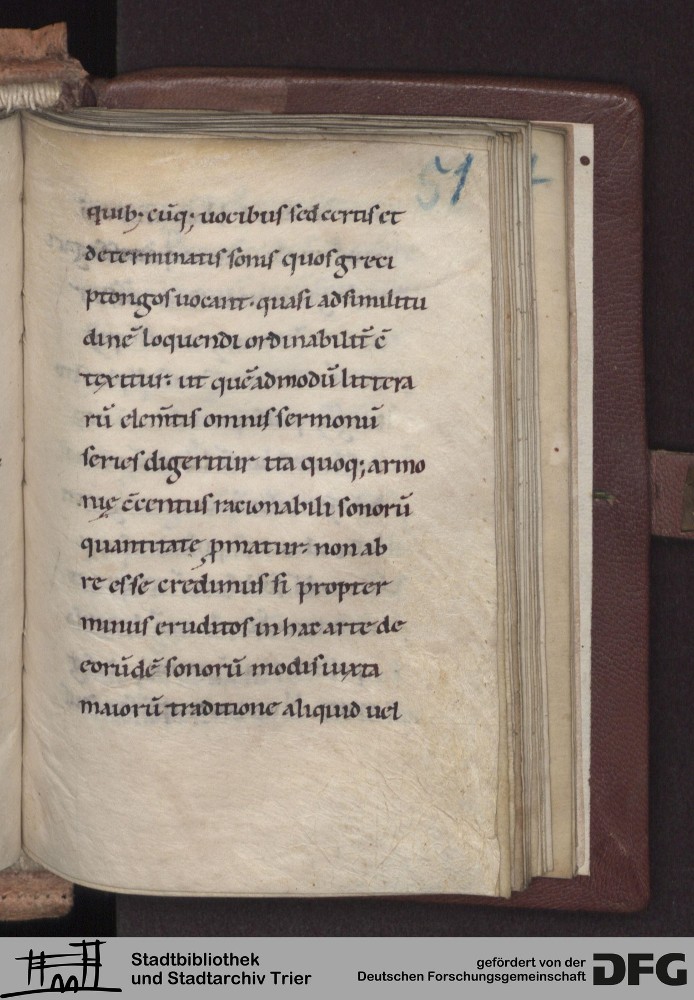 51
quib; cūq; uocibus sed certis et
determinatis sonis quos greci
ptongos uocant. quasi ad similitu
dinē loquendi ordinabilit̄ c̄
texitur. ut quēadmodū littera
rū elem̄tis omnis sermonū
series digeritur ita quoq; armo
nię c̄centus racionabili sonorū
quantitate ꝓmatur. non ab
re esse credimus si propter
minus eruditos in hac arte de
eorūdē sonorū modis iuxta
maiorū traditione aliquid uel
Stadtbibliothek
und Stadtarchiv Trier
gefördert von der
Deutschen Forschungsgemeinschaft
DFG